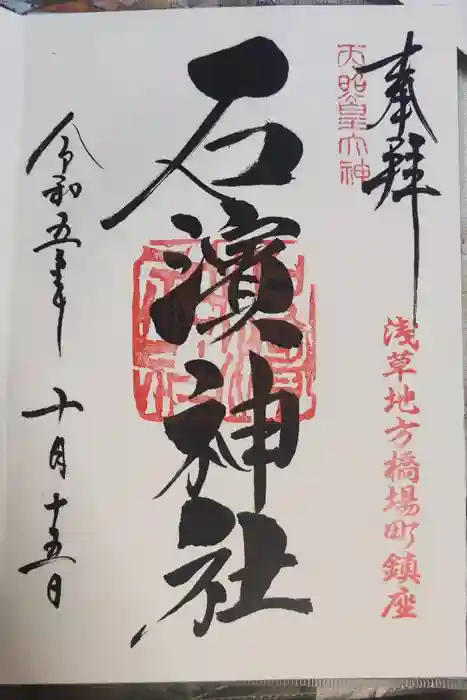 奉拝
天照皇大神
浅草地方橋場町鎮座
石濱神社
令和五年 十月十五日